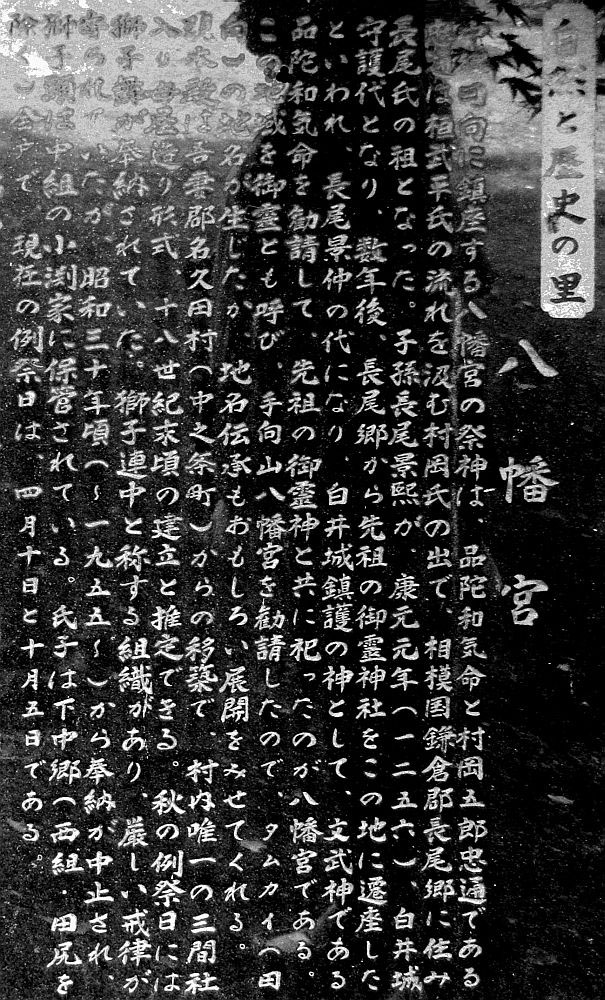 自然と歴史の里
八幡宮
字田向に鎮座する八幡宮の祭神は、品陀和気命と村岡五郎忠通である
忠通は桓武平氏の流れを汲む村岡氏の出で、相模国鎌倉郡長尾郷に住み
長尾氏の祖となった。子孫長尾景熙が、康元元年(一二五六)、白井城
守護代となり、数年後、長尾郷から先祖の御霊神社をこの地に遷座した
といわれ、長尾景仲の代になり、白井城鎮護の神として、文武神である
品陀和気命を勧請して、先祖の御霊神と共に祀ったのが八幡宮である。
この地域を御霊とも呼び、手向山八幡宮を勧請したので、タムカイ(田
向)の地名が生じたか、地名伝承もおもしろい展開をみせてくれる。
現本殿は吾妻郡名久田村(中之条町)からの移築で、村内唯一の三間社
入り母屋造り形式、十八世紀末頃の建立と推定できる。秋の例祭日には
獅子舞が奉納されていた。獅子連中と称する組織があり、厳しい戒律が
守られていたが、昭和三十年頃(~一九五五~)から奉納が中止され、
獅子頭は中組の小渕家に保官されている。氏子は下中郷(西組・田尻を
除く)全戸で、現在の例祭日は、四月十日と十月五日である。